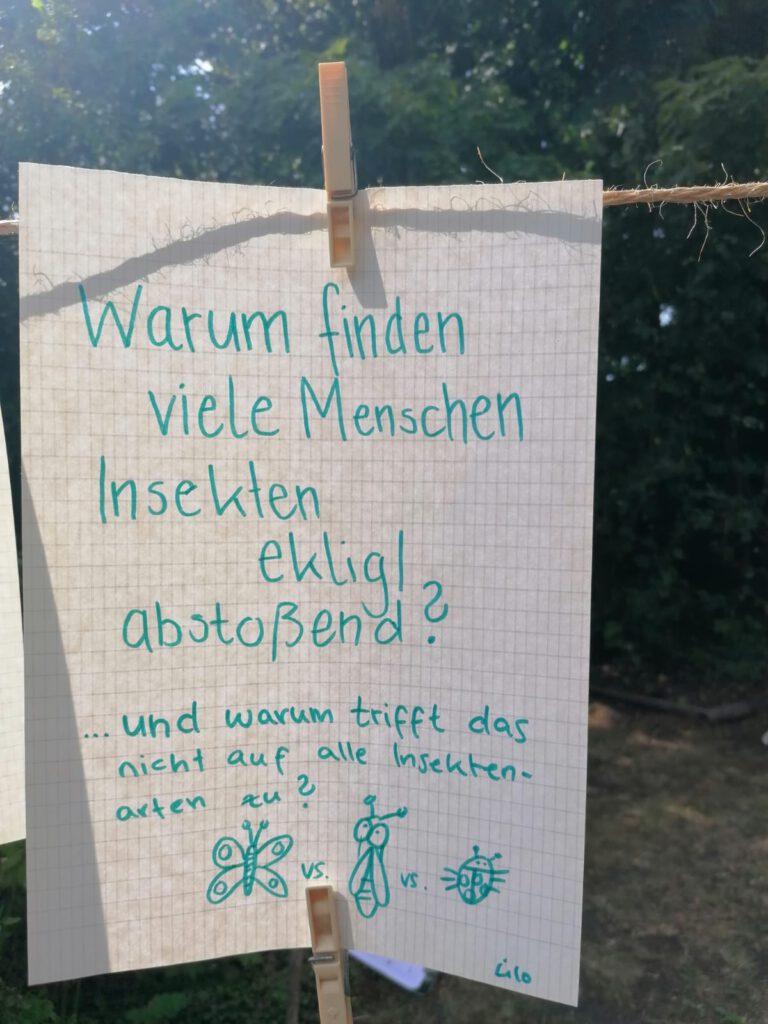 Warum finden
viele Menschen
Insekten
eklig/
abstoßend?
... und warum trifft das
nicht auf alle Insekten-
arten zu?
vs. vs.
Lilo